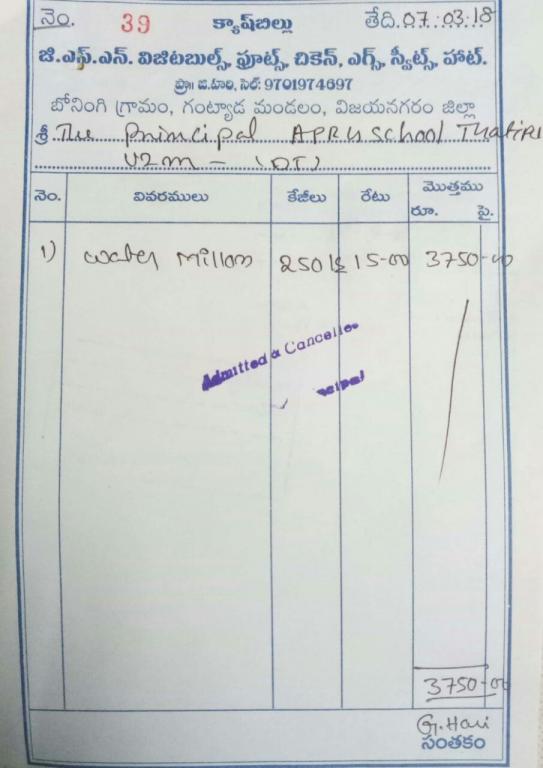 నెం. 39 క్యాష్‌బిల్లు తేది. 07.03.18
జి.ఎస్.ఎన్. విజిటబుల్స్, ఫ్రూట్స్, చికెన్, ఎగ్స్, స్వీట్స్, హాట్.
ప్రొః జి.హరి, సెల్: 9701974697
బోనింగి గ్రామం, గంట్యాడ మండలం, విజయనగరం జిల్లా
శ్రీ. The Principal APRH School Thatipi
VZM -
నెం. వివరములు కేజీలు రేటు మొత్తము
రూ. పై.
1) Water Millon 250 k 15-00 3750-00
Admitted & Cancelle
3750-00
G. Hari
సంతకం